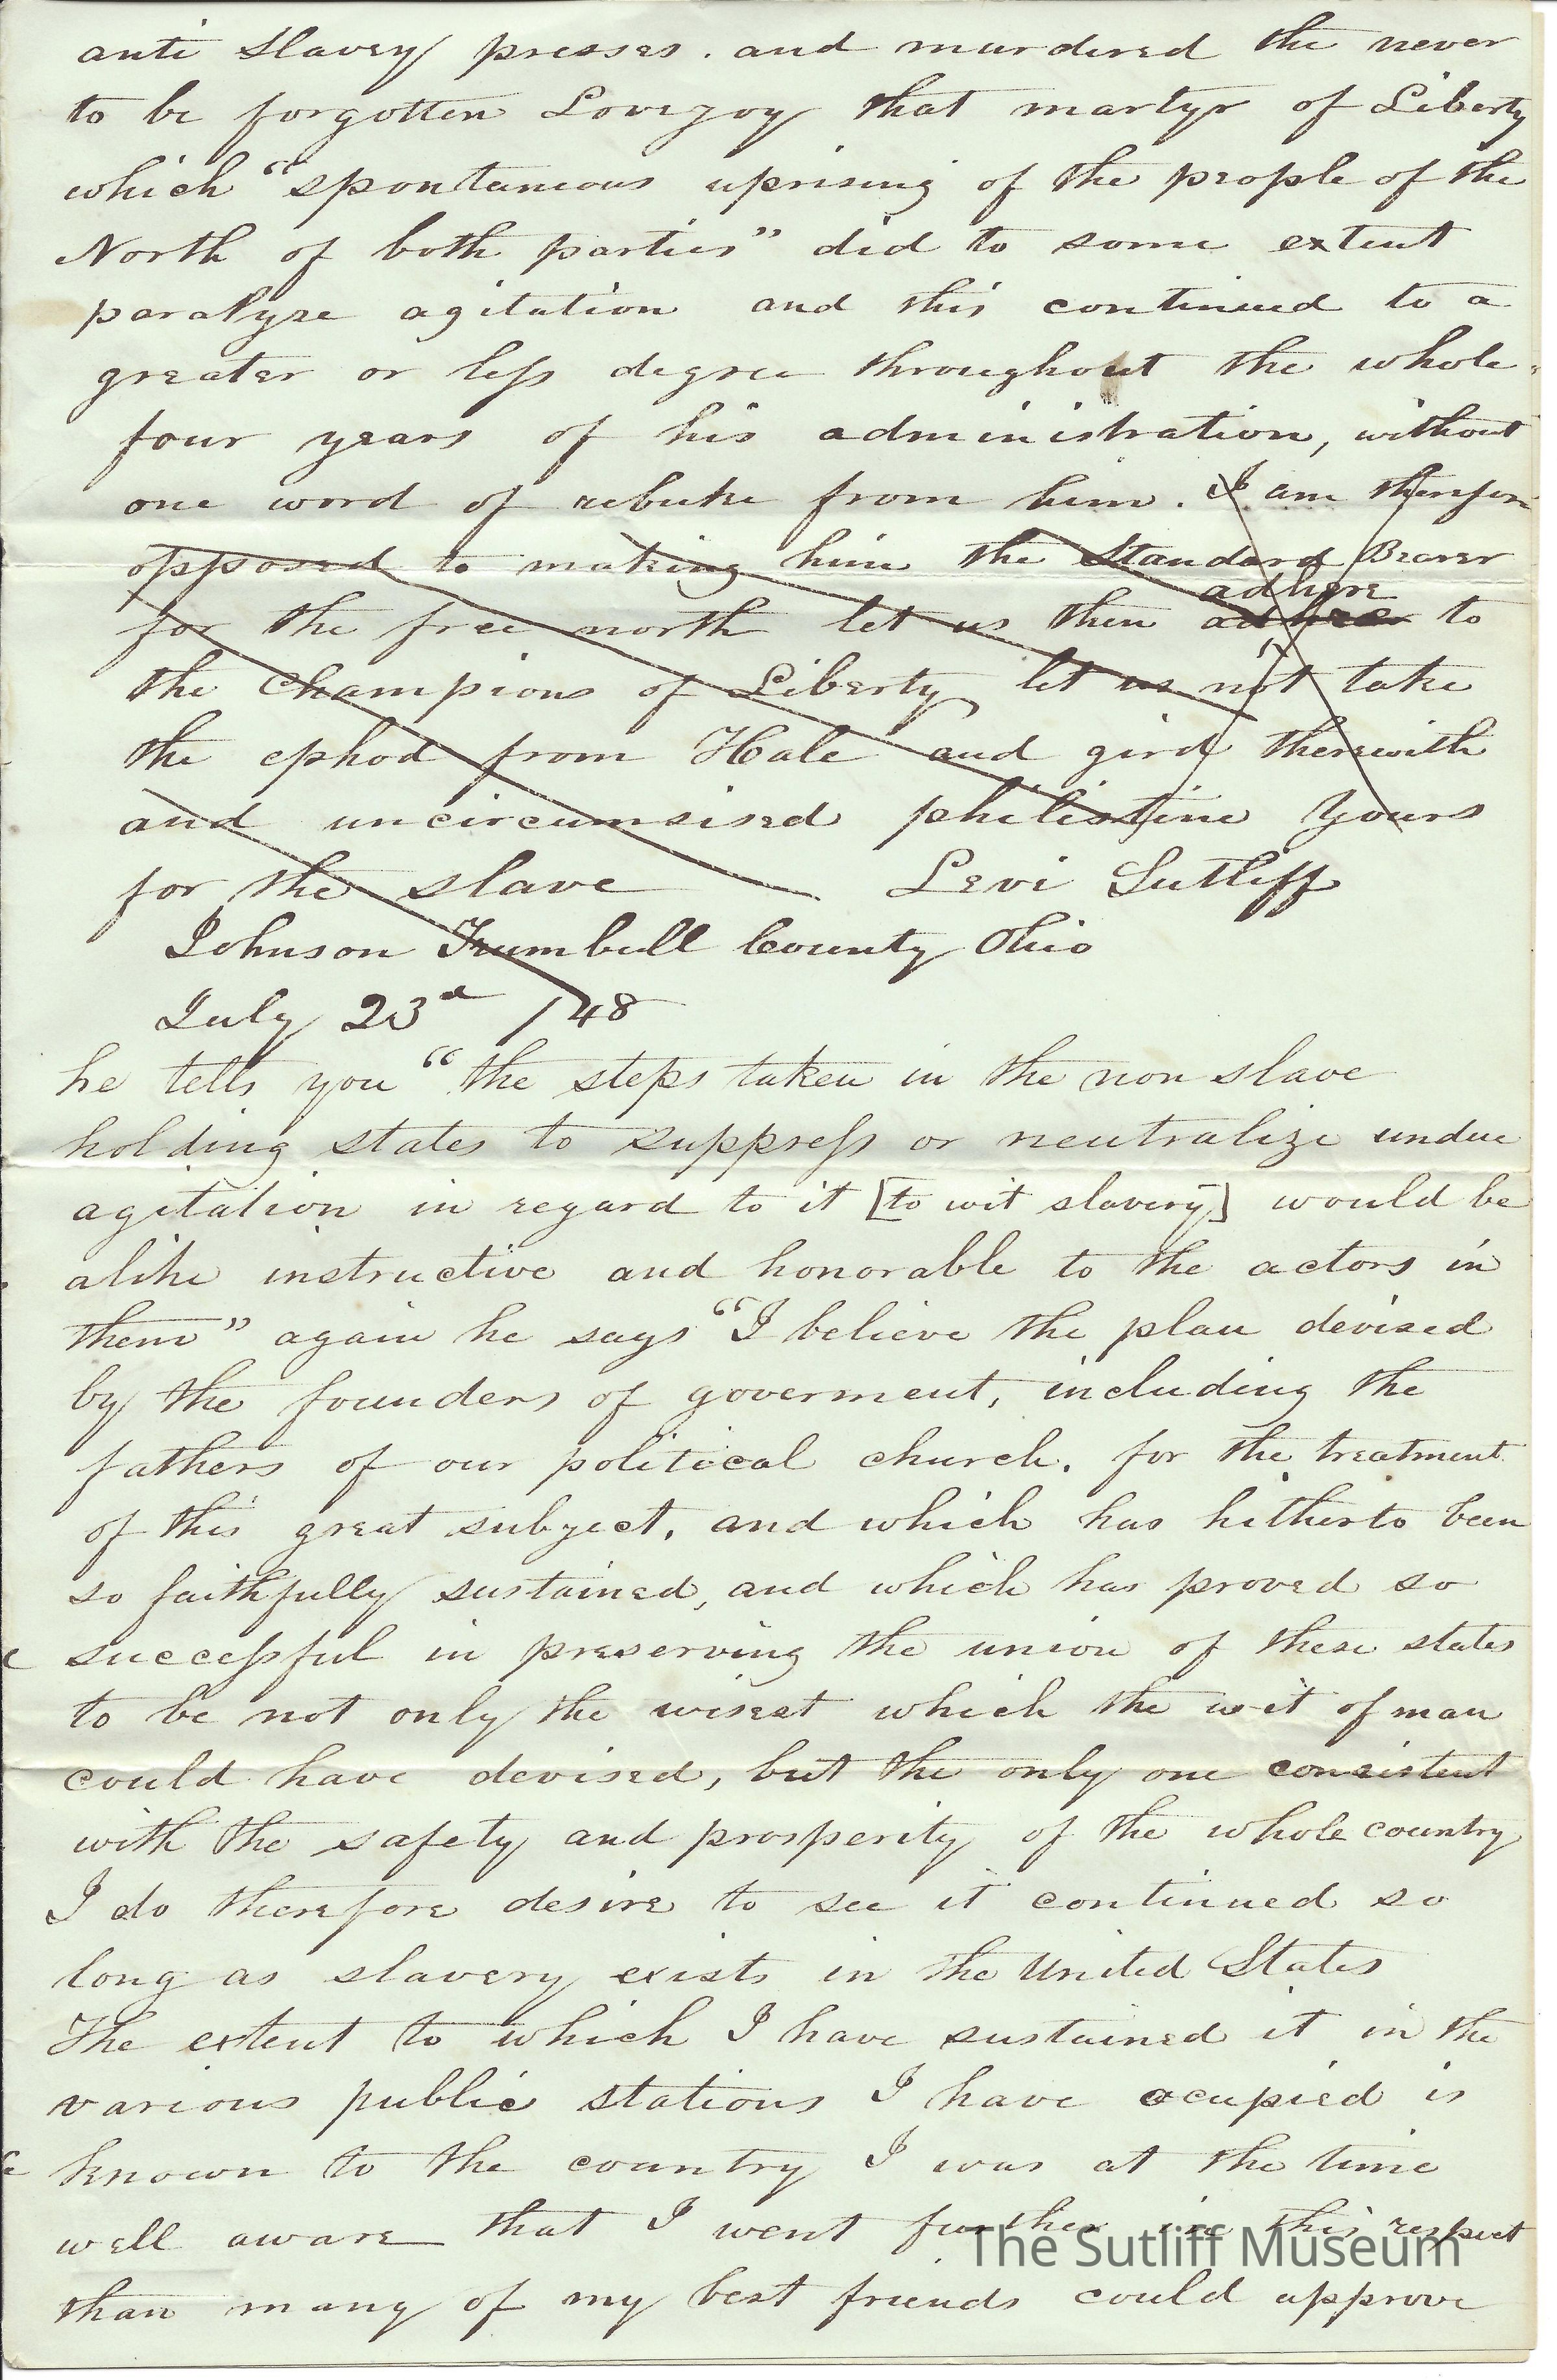 anti slavery presses. and murdered the never
to be forgotten Lovejoy that martyr of Liberty
which "spontaneous uprising of the people of the
North of both parties" did to some extent
paralyze agitation and this continued to a
greater or less degree throughout the whole
four years of his administration, without
one word of rebuke from him. I am therefore
opposed to making him the Standard Bearer
adhere
for the free north let us then to
the champions of Liberty let us not take
the ephod from Hale and gird therewith
and uncircumsised philistine Yours
for the slave Levi Sutliff
Johnson Trumbull County Ohio
July 23d /48
he tells you "the steps taken in the non slave
holding states to suppress or neutralize undue
agitation in regard to it [to wit slavery] would be
alike instructive and honorable to the actors in
them" again he says "I believe the plan devised
by the founders of goverment, including the
fathers of our political church. for the treatment
of this great subject, and which has hitherto been
so faithfully sustained, and which has proved so
successful in preserving the union of these states
to be not only the wisest which the wit of man
could have devised, but the only one consistent
with the safety and prosperity of the whole country
I do therefore desire to see it continued so
long as slavery exists in the United States
The extent to which I have sustained it in the
various public stations I have ocupied is
known to the country I was at the time
well aware that I went further in this respect
than many of my best friends could approve
The Sutliff Museum